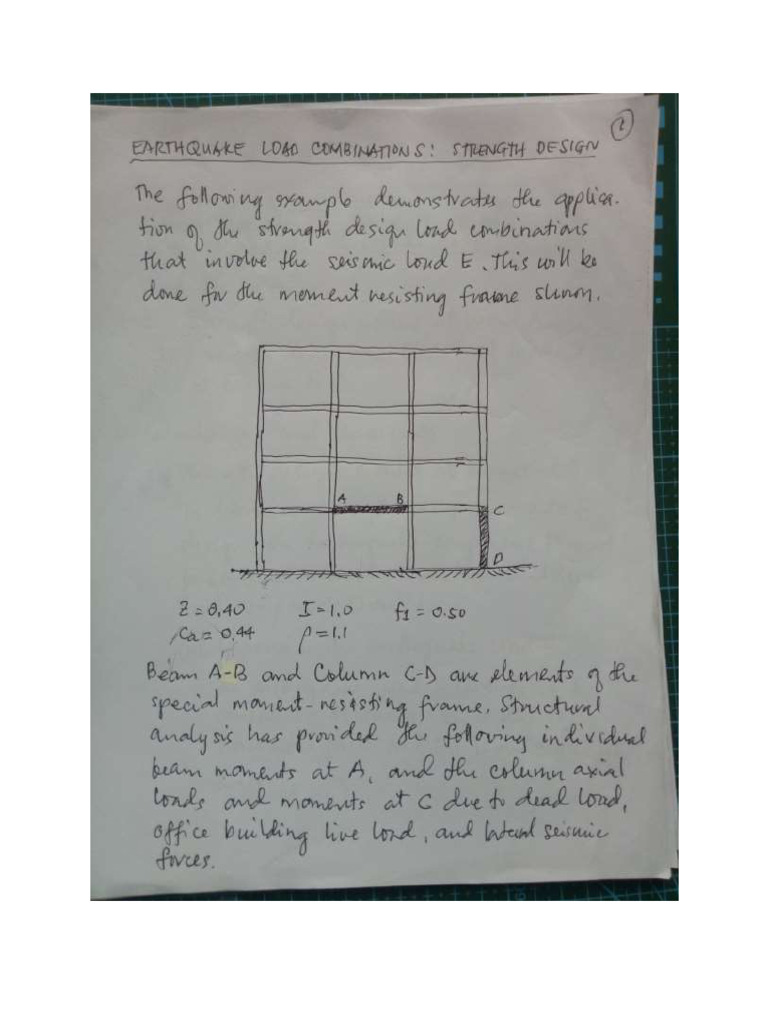 1
EARTHQUAKE LOAD COMBINATIONS: STRENGTH DESIGN
The following example demonstrates the applica-
tion of the strength design load combinations
that involve the seismic load E. This will be
done for the moment resisting frame shown.
A B
C
D
Z = 0.40 I = 1.0 f1 = 0.50
Ca = 0.44 ρ = 1.1
Beam A-B and Column C-D are elements of the
special moment-resisting frame. Structural
analysis has provided the following individual
beam moments at A, and the column axial
loads and moments at C due to dead load,
office building live load, and lateral seismic
forces.